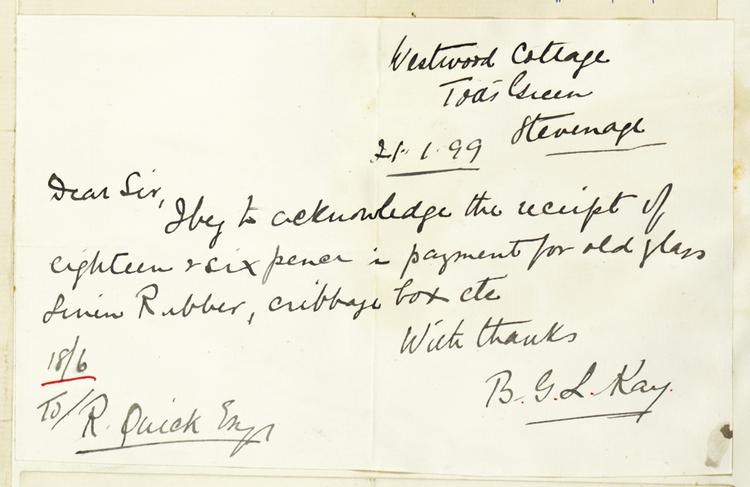 Westwood Cottage
Todd's Green
Stevenage
21.1.99
Dear Sir,
I beg to acknowledge the receipt of
eighteen & six pence in payment for old glass
Linen Rubber, cribbage box etc
With thanks
18/6
B.G.L. Kay.
To/
R. Quick Esqr